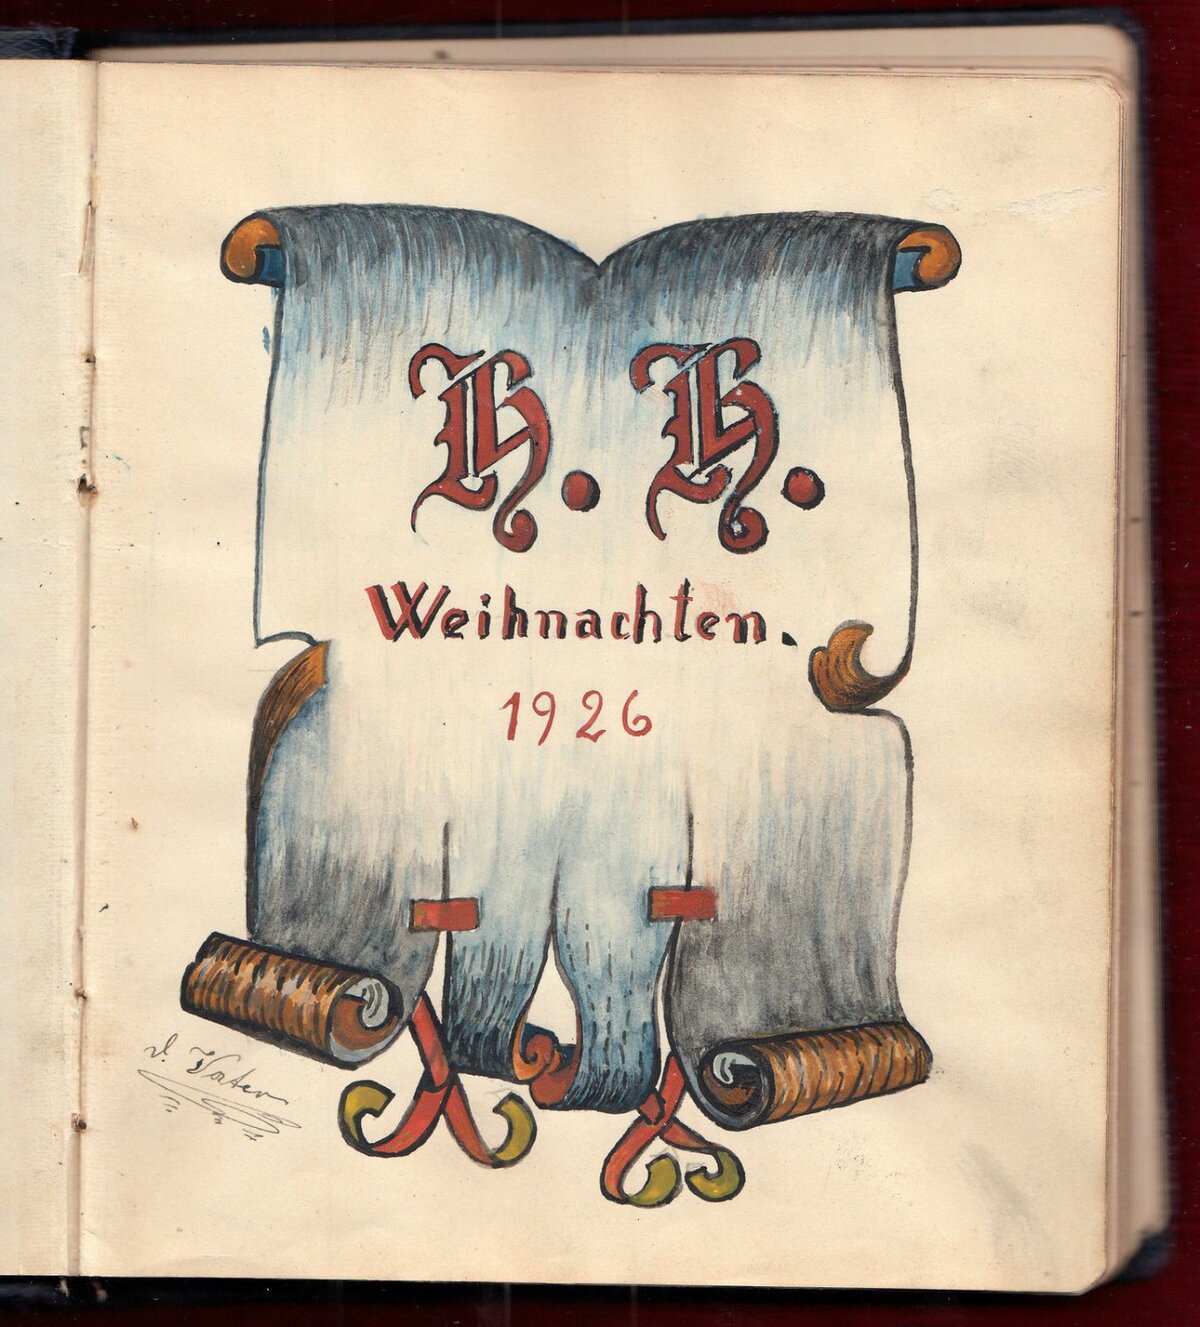 H. H.
Weihnachten.
1926
d. Vater